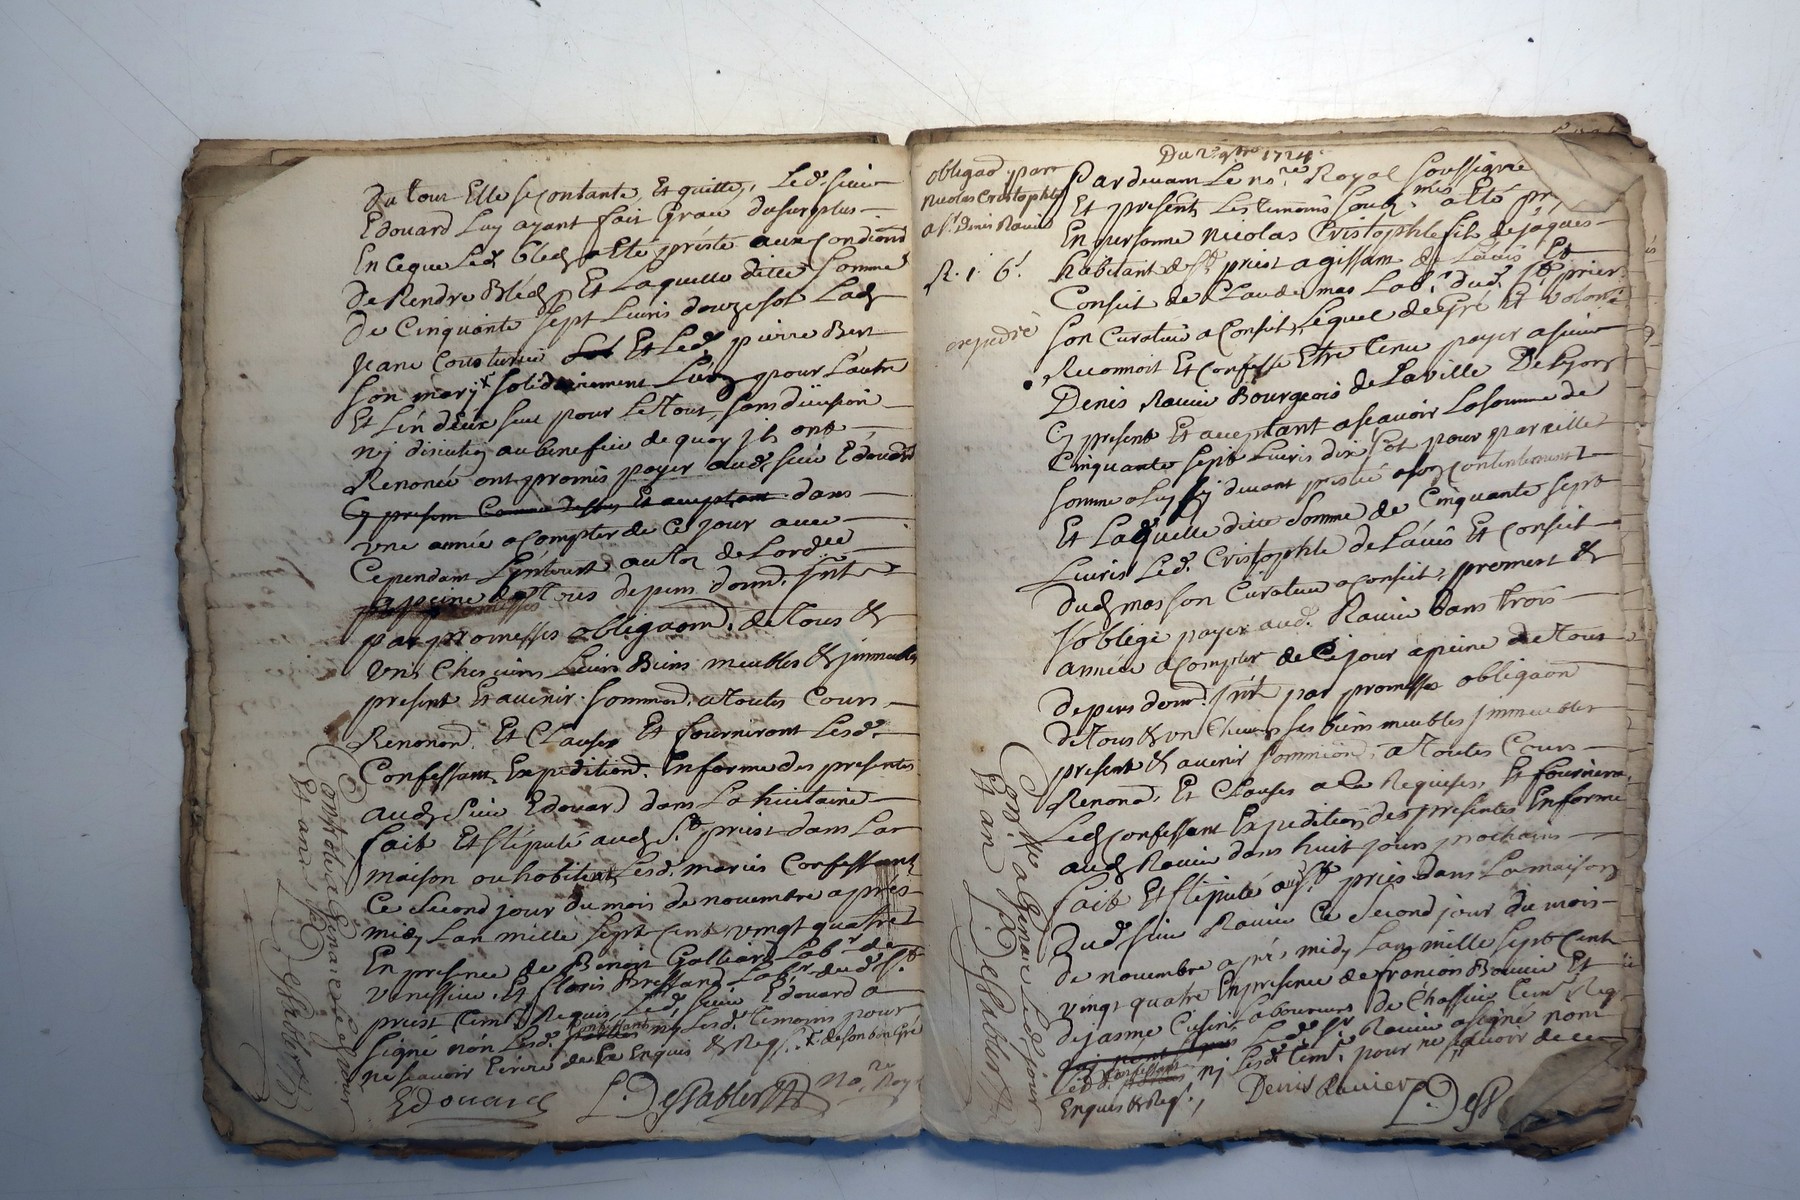 du tout Elle se contante, Et quitte, Led. sieur
Edouard Luy ayant fait Grace du surplus
En Ce que Led. bled a Eté présté aux Condions
de Rendre Bled, Et Laquelle ditte somme
de Cinquante sept Livris douze sol Lad.
Jeane Cousturier Et Led. pierre Bert
son mary solidairement L'un pour L'autre
Et L'un d'eux seul pour Le Tout, sans division
nj discution au benefice de quoy jls ont
Renoncé ont promis payer aud. sieur Edouard
Cy present Comme dessus Et acceptant dans
une année a Compter de Ce jour avec
Cependant L'jnterest au de Lord.ce
a peine de Tous depens dom.
par promesses obligaon. de Tous &
uns Chescuns Leurs Biens meubles & jmmeubles
present Et avenir. sommon. a Toutes Cours
Renonon. Et Clauses Et fourniront Lesd.
Confessants Expedition. En forme des presentes
aud. sieur Edouard dans La huitaine
fait Et stipulé aud. St. priest dans La
maison ou habitent Lesd. mariés Confessants
Ce second jour du mois de novembre apres
midy Lan mille sept Cent vingt quatre
En presence de Benoist Galliard Lab.r de
venissieu, Et Claris Bressand Lab.r dud. St.
priest tem. Requis, Led. sieur Edouard a
signé non Lesd. Confessants nj Lesd. temoins pour
ne sçavoir Ecrire de Ce Enquis & Req. de son bon Gré
Edouard L. DesSablettes No.re Roy
Conptrolé a Genas Led. jour
Et an
L. DesSablettes
Du 2e 9bre 1724
obligaon par
Nicolas Cristophle
a Sr. Denis Ravier
R. 1. 6.
expedié
Pardevant Le no.re Royal soussigné
Et presents Les temoins a Eté
En personne nicolas Cristophle fils de jaques
habitant de St. priest agissant de L'avis Et
Conseit de Claude mas Lab.r dud. St. prier
son Curateur a Conseit, Lequel de Gré Et volonté
Reconnoit Et Confesse Etre tenu payer a sieur
Denis Ravier Bourgeois de La ville De Lyon
Cy present Et acceptant a sçavoir La somme de
Cinquante sept Livris dix sol pour pareille
somme a Luy Cy devant prestée a son Contentement
Et Laquelle ditte somme de Cinquante sept
Livris Led. Cristophle de L'avis Et Conseit
dud. mas son Curateur a Conseit, promest &
s'oblige payer aud. Ravier dans trois
année a Compter de Ce jour a peine de Tous
depens dom. par promesse obligaon
de Tous & uns Chescuns ses biens meubles jmmeubles
present & avenir a Toutes Cours
Renonon. Et Clauses a Ce Requises, Et fournira
Led. Confessant Expedition des presentes En forme
aud. Ravier dans huit jours prochains
fait Et stipulé aud. St. priest dans La maison
dud. sieur Ravier Ce second jour du mois
de novembre apres midy Lan mille sept Cent
vingt quatre En presence de francois Et
dejasme Laboureurs de Chassieu tem. Req.
Led. Sr. Ravier a signé non
Led. Confessant nj Lesd. tem. pour ne sçavoir de ce
Enquis & Req.
Denis Ravier L. DesS
Con.lle a Genas Led. jour
Et an
L. DesSablettes